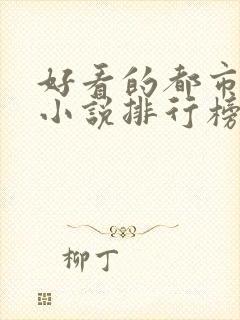 好看的都市
小说排行榜
柳丁